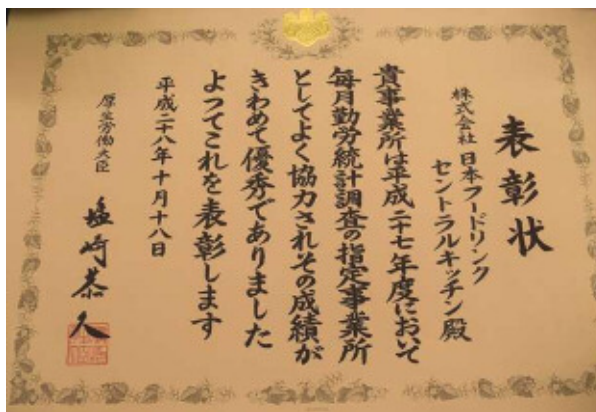 表彰状
株式会社 日本フードリンク
セントラルキッチン殿
貴事業所は平成二十七年度において
毎月勤労統計調査の指定事業所
としてよく協力されその成績が
きわめて優秀でありました
よってこれを表彰します
平成二十八年十月十八日
厚生労働大臣 塩崎恭久